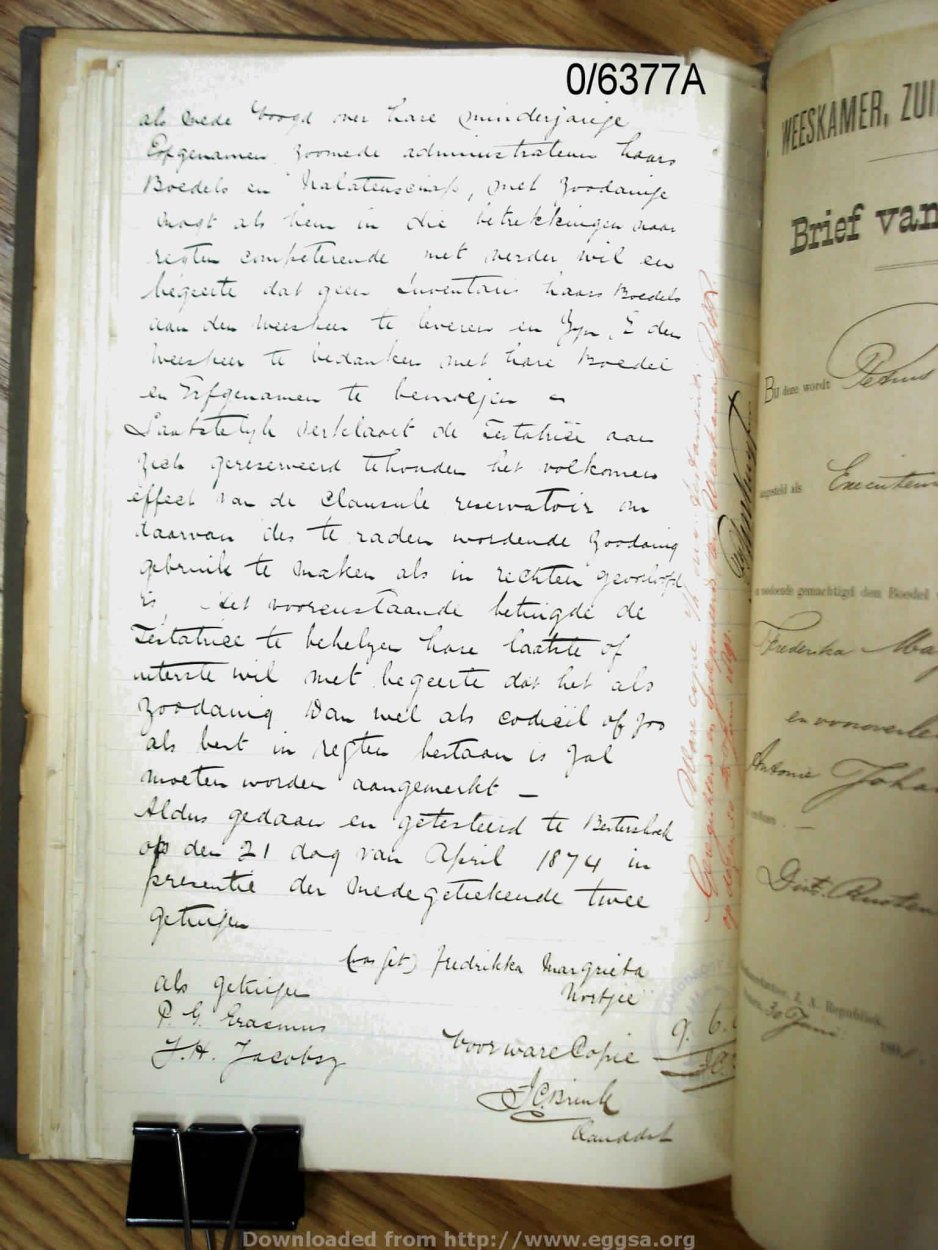 0/6377A
als mede Voogd over hare minderjarige
Erfgenamen, zoomede administrateur haars
Boedels en Nalatenschap, met zoodanige
magt als hem in die betrekkingen naar
regten competerende met verder wil en
begeerte dat geen Inventaris haars Boedels
aan den Weesheer te leveren en Zyn E den
Weesheer te bedanken met hare Boedel
en Erfgenamen te bemoejen
Laatstelyk verklaart de Testatrice aan
Zich gereserveerd tehouden het volkomen
effect van de Clausule reservatoir om
daarvan des te raden wordende zoodanig
gebruik te maken als in rechten geoorloofd
is, Het voorenstaande betuigde de
Testatrice te behelzen hare laatste of
uiterste wil met begeerte dat het als
zoodanig dan wel als codicil of zoo
als best in regten bestaan is zal
moeten worden aangemerkt —
Aldus gedaan en getesteerd te
op den 21 dag van April 1874 in
presentie der medegetekende twee
getuigen
(was get) Fredrikka Margrieta
als getuigen
P. G. Erasmus
J. H. Jacobsz
Voor ware Copie
J C Brink
Ware copie
WEESKAMER, ZUI
Brief van
Bij deze wordt Petrus
aangesteld als Executeur
gemachtigd den Boedel
Frederika Ma
en vooroverle
Antonie Joha
Dist. Rusten
Z. A. Republiek,
30 Juni
Downloaded from http://www.eggsa.org